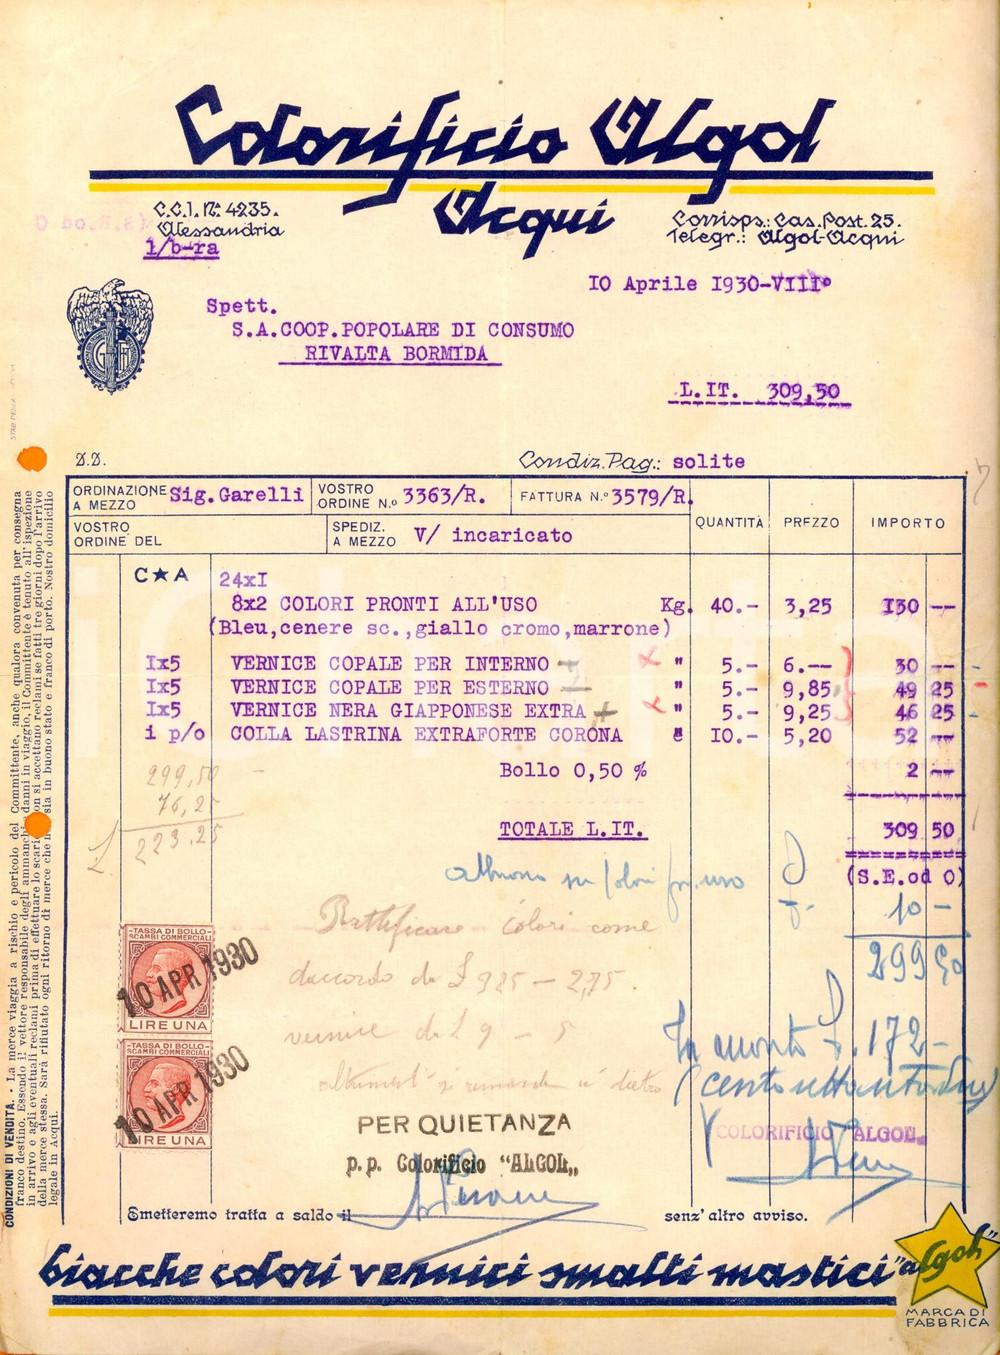 Colorificio Algol
Acqui
C.C.I. N.º 4235.
Alessandria
1/b-ra
Corrisp.: Cas. Post. 25.
Telegr.: Algol-Acqui
IO Aprile I930-VIIIº
Spett.
S.A.COOP.POPOLARE DI CONSUMO
RIVALTA BORMIDA
L.IT. 309,50
Condiz. Pag.: solite
ORDINAZIONE A MEZZO Sig.Garelli
VOSTRO ORDINE N.º 3363/R.
FATTURA N.º 3579/R.
VOSTRO ORDINE DEL
SPEDIZ. A MEZZO V/ incaricato
QUANTITÀ PREZZO IMPORTO
C★A 24xI
8x2 COLORI PRONTI ALL'USO Kg. 40.- 3,25 I30 --
(Bleu,cenere sc.,giallo cromo,marrone)
Ix5 VERNICE COPALE PER INTERNO " 5.- 6.-- 30 --
Ix5 VERNICE COPALE PER ESTERNO " 5.- 9,85 49 25
Ix5 VERNICE NERA GIAPPONESE EXTRA " 5.- 9,25 46 25
i p/o COLLA LASTRINA EXTRAFORTE CORONA " IO.- 5,20 52 --
Bollo 0,50 % 2 --
299,50
76,25
223.25
TOTALE L.IT. 309 50
(S.E.od O)
10 -
299 50
Rettificare colori come
daccordo da £ 925 - 2,75.
vernice da £ 9 - 5
172 -
TASSA DI BOLLO
SCAMBI COMMERCIALI
10 APR 1930
LIRE UNA
TASSA DI BOLLO
SCAMBI COMMERCIALI
10 APR 1930
LIRE UNA
PER QUIETANZA
p.p. Colorificio "ALGOL„
COLORIFICIO ALGOL
Emetteremo tratta a saldo il senz' altro avviso.
CONDIZIONI DI VENDITA. - La merce viaggia a rischio e pericolo del Committente, anche qualora convenuta per consegna
franco destino. Essendo il vettore responsabile degli ammanchi e danni in viaggio, il Committente è tenuto all'ispezione
in arrivo e agli eventuali reclami prima di effettuare lo scarico. Non si accettano reclami se fatti tre giorni dopo l'arrivo
della merce stessa. Sarà rifiutato ogni ritorno di merce che non sia in buono stato e franco di porto. Nostro domicilio
legale in Acqui.
biacche colori vernici smalti mastici "algol"
MARCA DI
FABBRICA